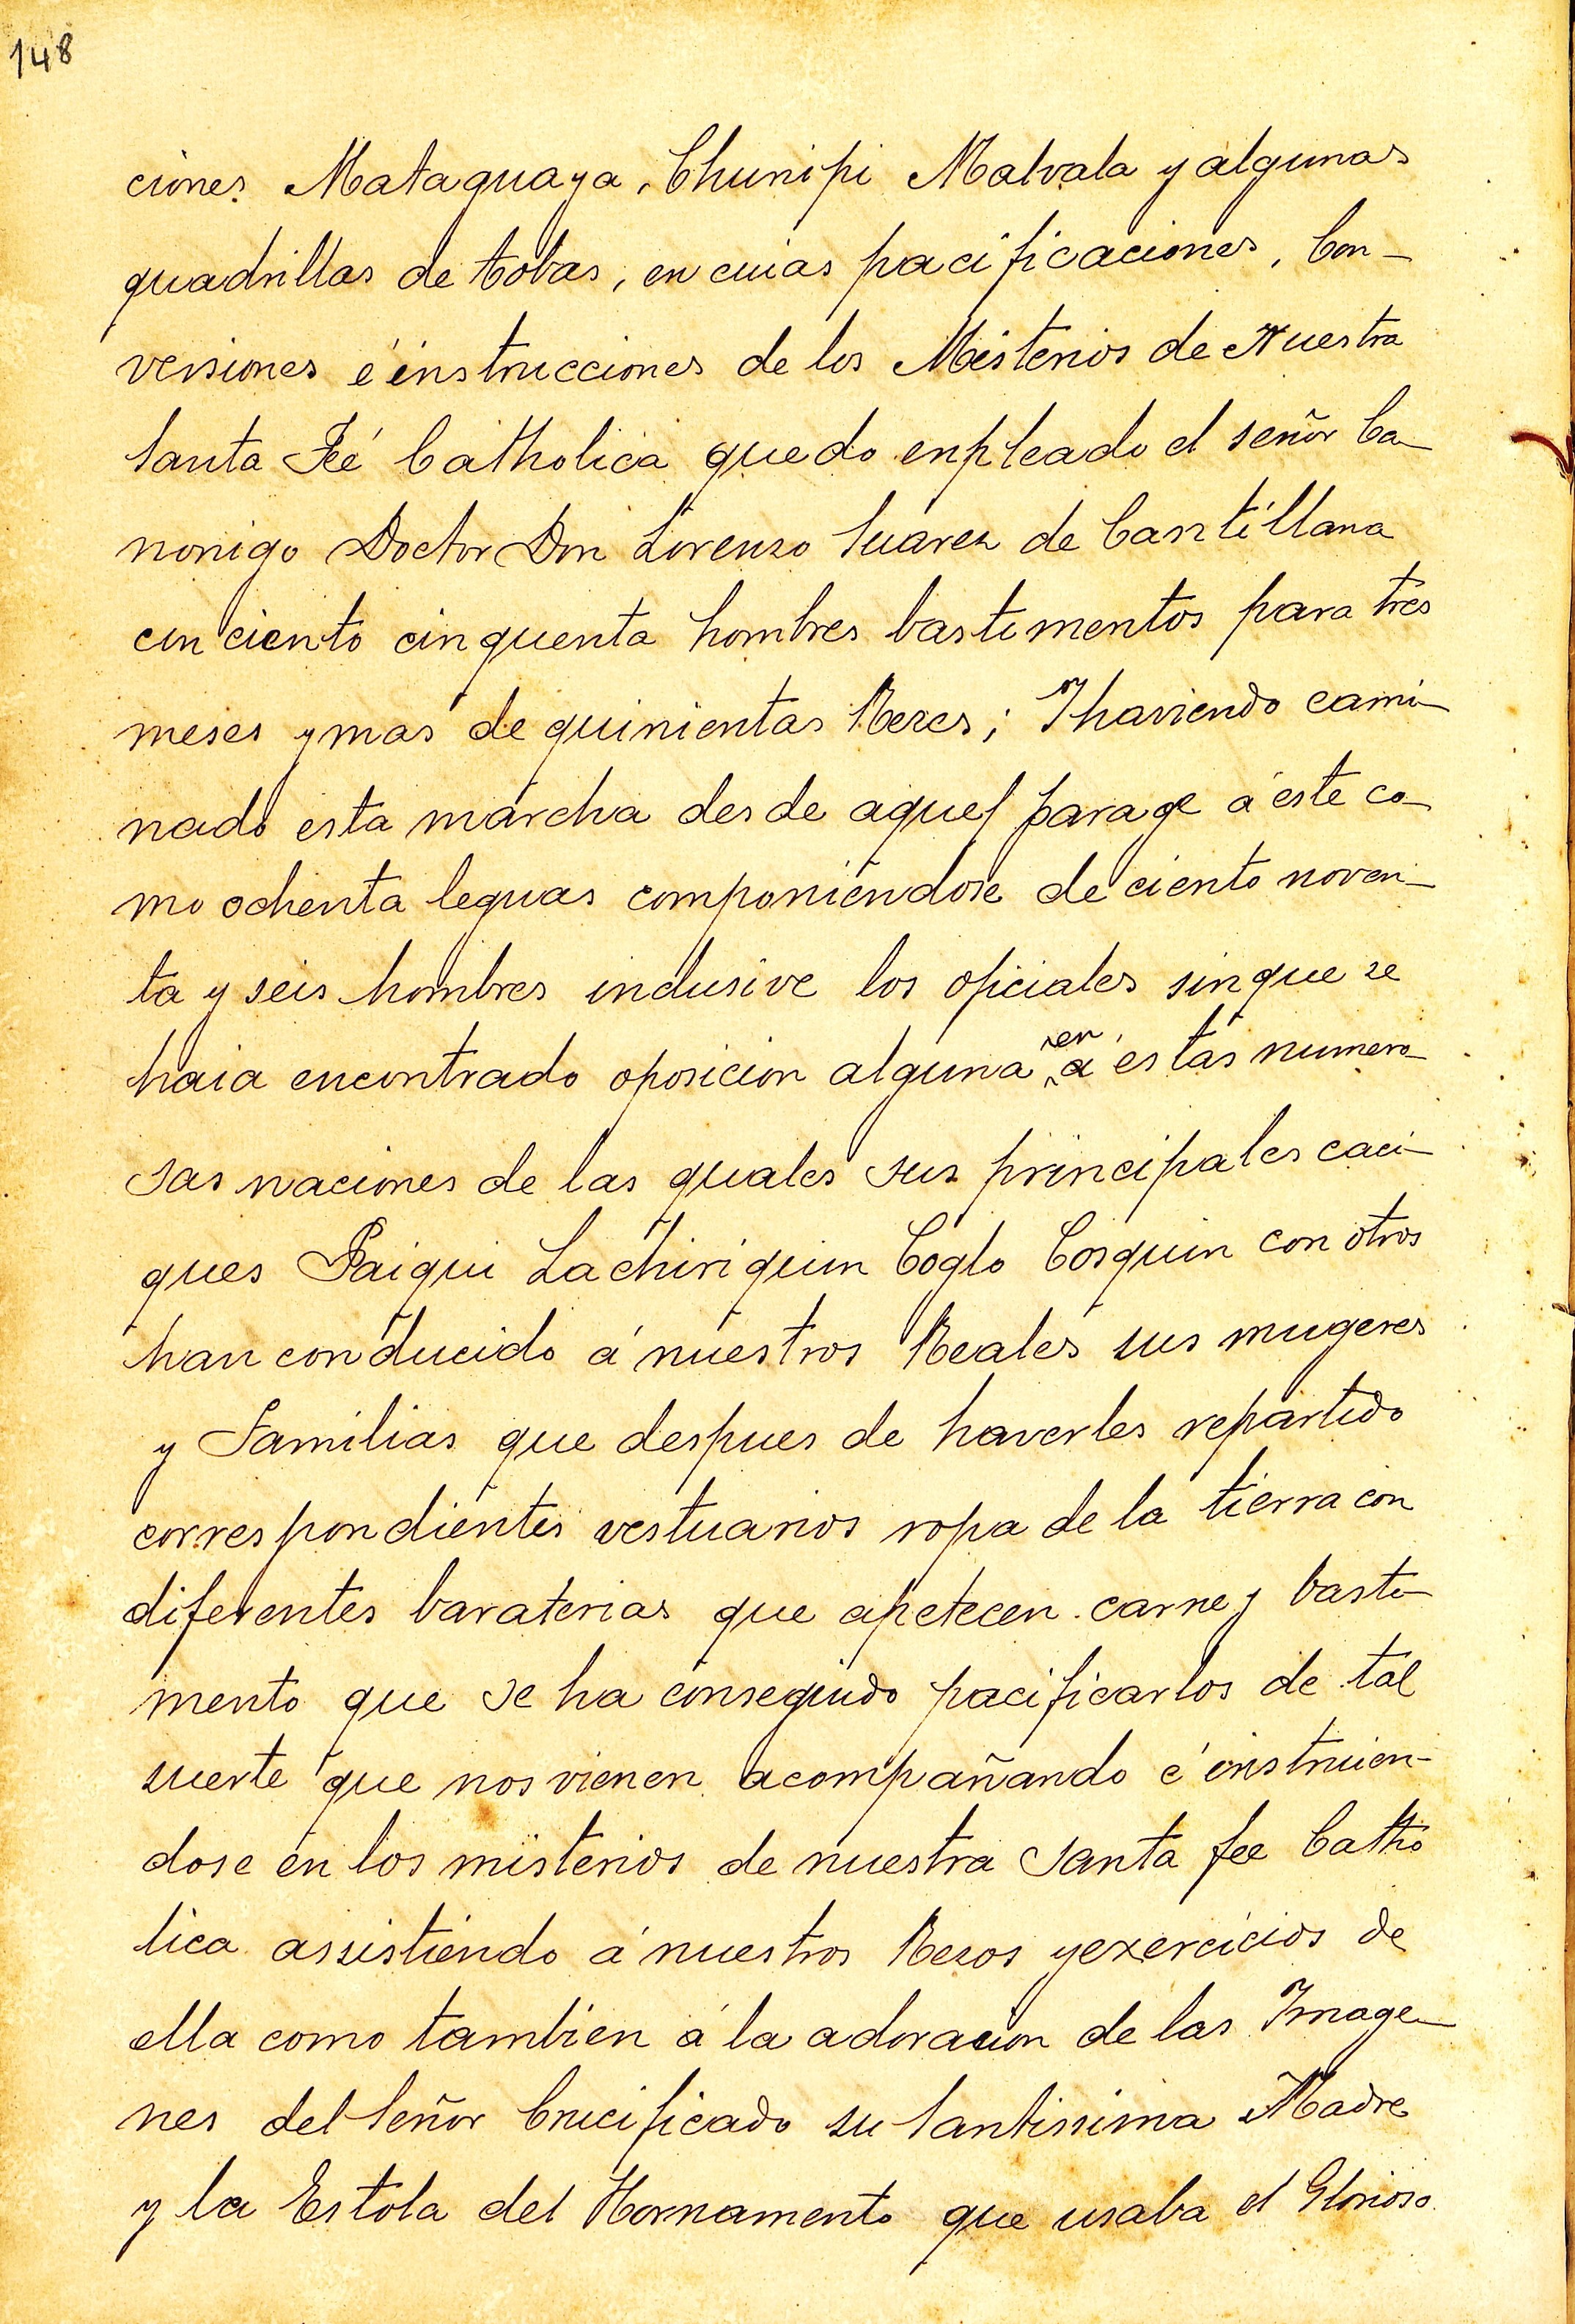 148
ciones Mataguaya, Chunipi Malvala y algunas
quadrillas de tobas, en cuias pacificaciones, Con-
versiones é instrucciones de los Misterios de Nuestra
Santa Feé Catholica quedo enpleado el señor Ca-
nonigo Doctor Don Lorenzo Suarez de Cantillana
con ciento cinquenta hombres bastimentos para tres
meses y mas de quinientas Rezes; Y haviendo cami-
nado esta marcha desde aquel parage á este co-
mo ochenta leguas componiendose de ciento noven-
ta y seis hombres inclusive los oficiales sin que se
haia encontrado oposicion alguna en á estas numero-
sas naciones de las quales sus principales caci-
ques Paiqui Lachiriquin Coglo Cosquin con otros
han conducido á nuestros Reales sus mugeres
y Familias que despues de haverles repartido
correspondientes vestuarios ropa de la tierra con
diferentes baraterias que apetecen carne y basti-
mento que se ha conseguido pacificarlos de tal
suerte que nos vienen acompañando é instruien-
dose en los misterios de nuestra Santa fee Catho
lica assistiendo á nuestros Rezos y exercicios de
ella como tambien á la adoracion de las Image-
nes del Señor Crucificado su Santissima Madre
y la Estola del Hornamento que usaba el Glorioso